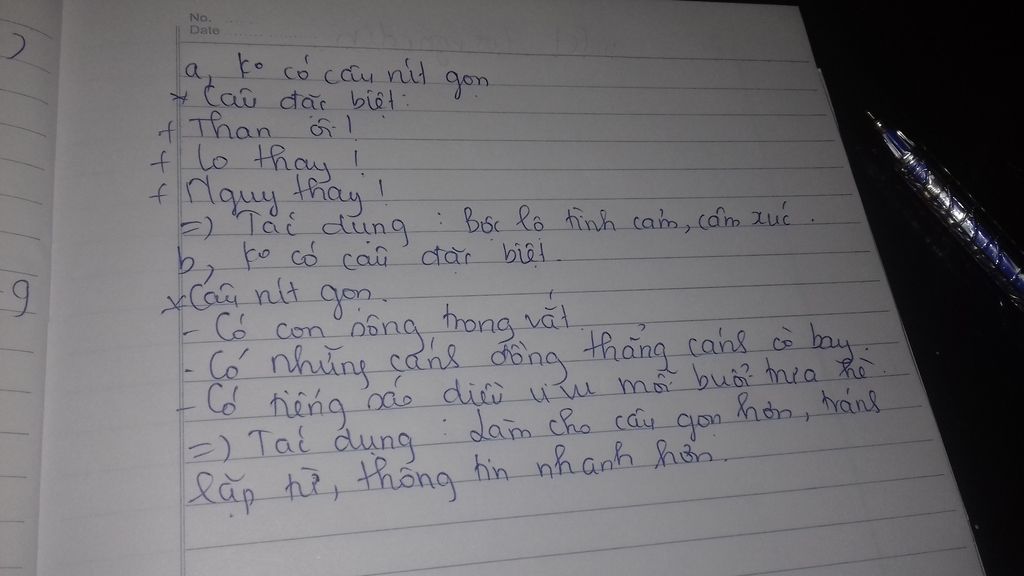 No.
Date
a, ko có câu rút gọn
* Câu đặc biệt:
+ Than ôi!
+ Lo thay!
+ Nguy thay!
=) Tác dụng: Bộc lộ tình cảm, cảm xúc.
b, ko có câu đặc biệt.
* Câu rút gọn.
- Có con sông trong vắt
- Có những cánh đồng thẳng cánh cò bay.
- Có tiếng sáo diều vi vu mỗi buổi trưa hè.
=) Tác dụng: Làm cho câu gọn hơn, tránh
lặp từ, thông tin nhanh hơn.